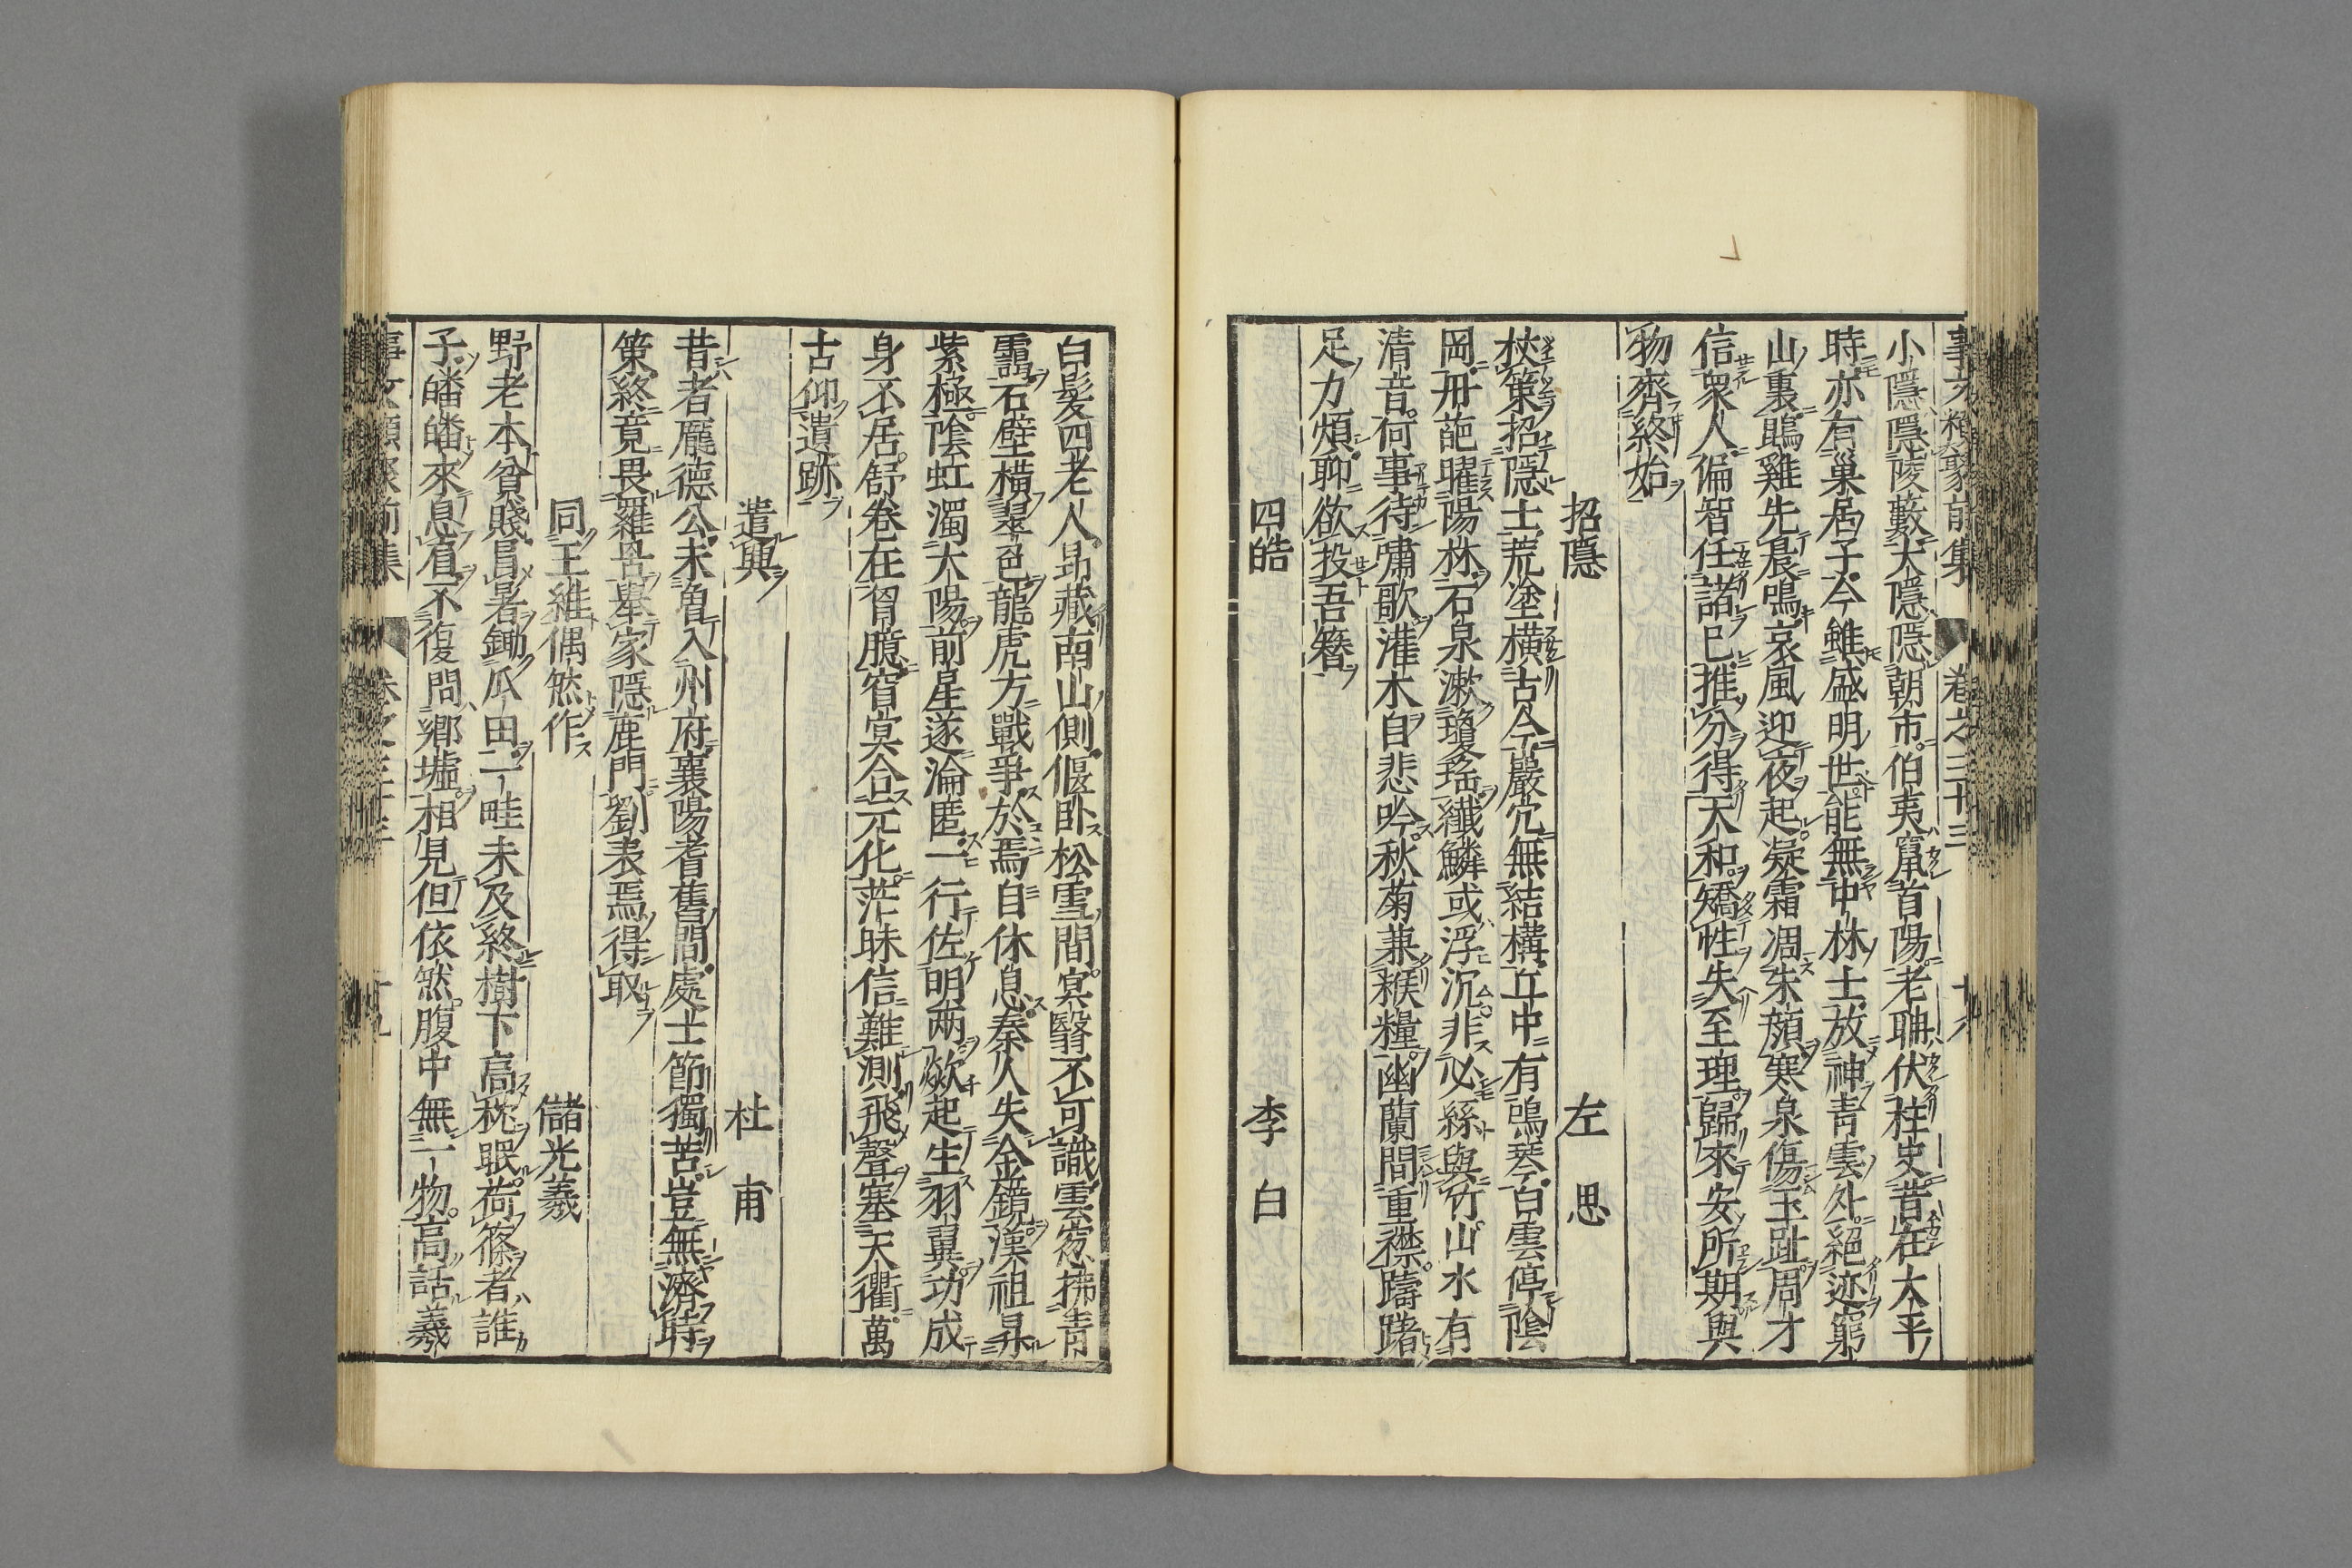 事文類聚前集 卷之三十三 十八
小隱隱陵藪大隱隱朝市伯夷竄首陽老聃伏柱史昔在太平
時亦有巢居子今雖盛明世能無中林士放神靑雲外絕迹窮
山裏鵾雞先晨鳴哀風迎夜起凝霜凋朱顔寒泉傷玉趾周才
信衆人偏智任諸己推分得天和矯性失至理歸來安所期與
物齊終始
招隱 左思
杖策招隱士荒塗橫古今巖穴無結構丘中有鳴琴白雲停陰
岡丹葩曜陽林石泉漱瓊瑤纖鱗或浮沉非必絲與竹山水有
淸音何事待嘯歌灌木自悲吟秋菊兼糇糧幽蘭間重襟躊躇
足力煩聊欲投吾簪
四皓 李白
白髪四老人昂藏南山側偃卧松雪間冥翳不可識雲窓拂靑
靄石壁橫翠色龍虎方戰爭於焉自休息秦人失金鏡漢祖昇
紫極陰虹濁太陽前星遂淪匿一行佐明兩歘起生羽翼功成
身不居舒卷在胷臆窅冥合元化茫昧信難測飛聲塞天衢萬
古仰遺跡
遣興 杜甫
昔者龐德公未曾入州府襄陽耆舊間處士節獨苦豈無濟時
策終竟畏羅罟舉家隱鹿門劉表焉得取
同王維偶然作 儲光羲
野老本貧賤冒暑鋤瓜田一畦未及終樹下高枕眠荷篠者誰
子皤皤來息肩不復問鄉墟相見但依然腹中無一物高話羲
事文類聚前集 卷之三十三 十九